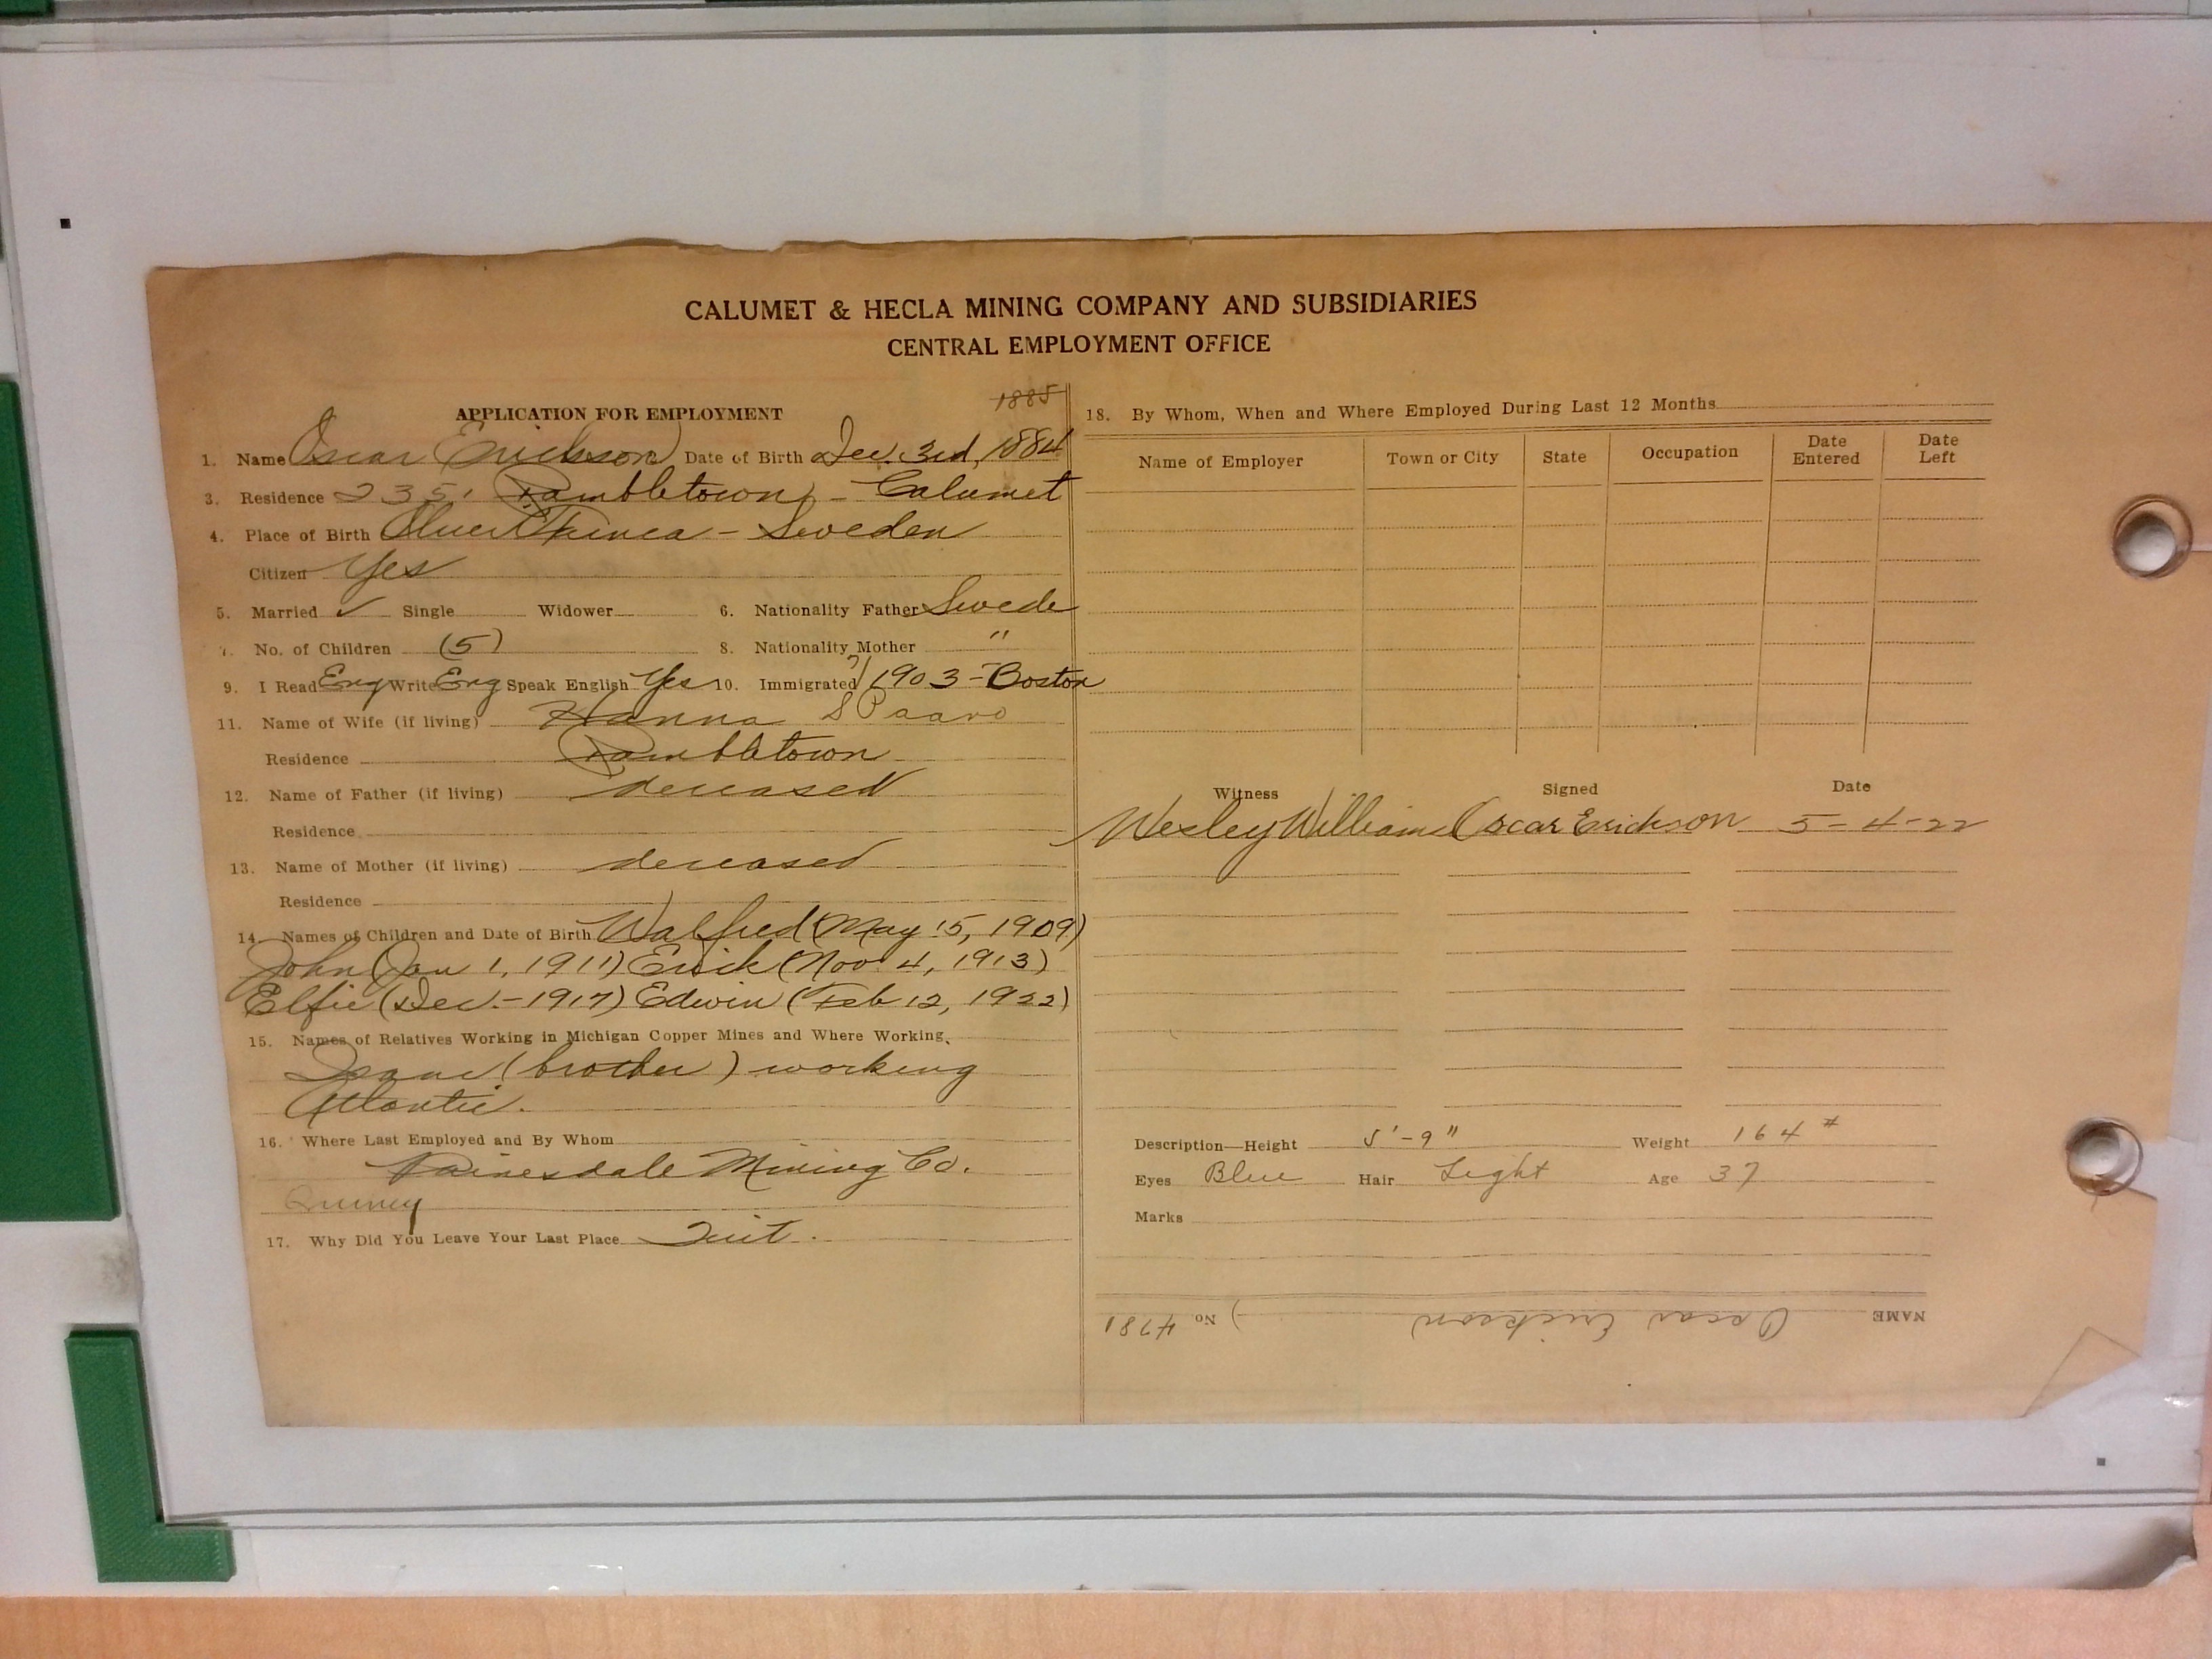 CALUMET & HECLA MINING COMPANY AND SUBSIDIARIES
CENTRAL EMPLOYMENT OFFICE
APPLICATION FOR EMPLOYMENT
1885
1. Name Oscar Erickson Date of Birth Dec. 3rd, 1884
3. Residence 2351 Rambletown - Calumet
4. Place of Birth - Sweden
Citizen Yes
5. Married ✓ Single Widower 6. Nationality Father Swede
7. No. of Children (5) 8. Nationality Mother "
9. I Read Eng Write Eng Speak English Yes 10. Immigrated 1903 - Boston
11. Name of Wife (if living) Hanna
Residence Rambletown
12. Name of Father (if living) deceased
Residence
13. Name of Mother (if living) deceased
Residence
14. Names of Children and Date of Birth Walfred (May 15, 1909)
John (Jan 1, 1911) Erick (Nov. 4, 1913)
Elfie (Dec. - 1917) Edwin (Feb 12, 1922)
15. Names of Relatives Working in Michigan Copper Mines and Where Working.
Isaac (brother) working
Atlantic.
16. Where Last Employed and By Whom
Painesdale Mining Co.
Quincy
17. Why Did You Leave Your Last Place Quit.
18. By Whom, When and Where Employed During Last 12 Months
Name of Employer Town or City State Occupation Date Entered Date Left
Witness Signed Date
Wesley William Oscar Erickson 5-4-22
Description—Height 5'-9" Weight 164 #
Eyes Blue Hair Light Age 37
Marks
NAME Oscar Erickson No 4781